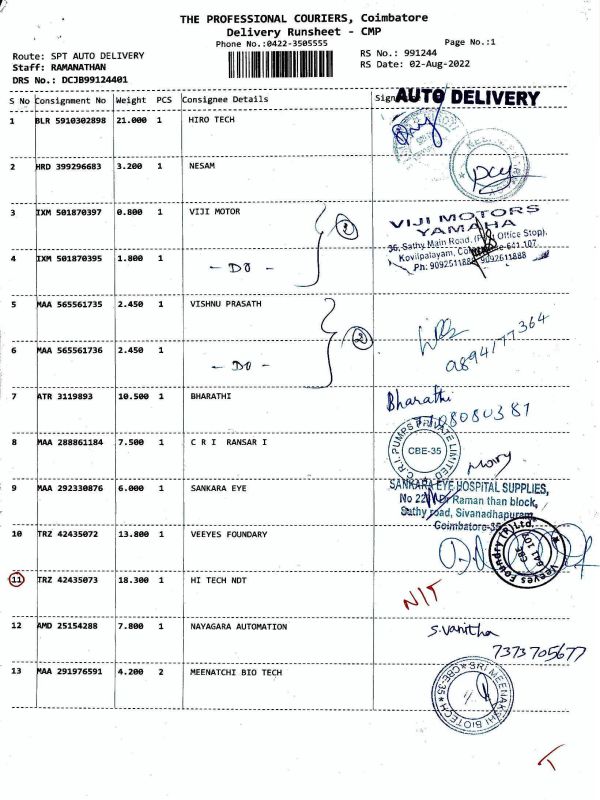 THE PROFESSIONAL COURIERS, Coimbatore
Delivery Runsheet - CMP
Phone No.:0422-3505555
Page No.:1
Route: SPT AUTO DELIVERY
RS No.: 991244
Staff: RAMANATHAN
RS Date: 02-Aug-2022
DRS No.: DCJB99124401
S No Consignment No Weight PCS Consignee Details
AUTO DELIVERY
1 BLR 5910302898 21.000 1 HIRO TECH
2 HRD 399296683 3.200 1 NESAM
3 IXM 501870397 0.800 1 VIJI MOTOR
2
VIJI MOTORS
YAMAHA
36, Sathy Main Road, (Post Office Stop),
Kovilpalayam, 641 107
Ph: 9092511888, 9092611888
4 IXM 501870395 1.800 1 - DO -
5 MAA 565561735 2.450 1 VISHNU PRASATH
2
0894177364
6 MAA 565561736 2.450 1 - DO -
7 ATR 3119893 10.500 1 BHARATHI
Bharathi
8 MAA 288861184 7.500 1 C R I RANSAR I
C.R.I. PUMPS PRIVATE LIMITED
CBE-35
9 MAA 292330876 6.000 1 SANKARA EYE
SANKARA EYE HOSPITAL SUPPLIES,
Raman than block,
Sathy road, Sivanadhapuram,
Coimbatore-35
10 TRZ 42435072 13.800 1 VEEYES FOUNDARY
Veeyes Foundry (P) Ltd.
CBE
641 107
11 TRZ 42435073 18.300 1 HI TECH NDT
N/T
12 AMD 25154288 7.800 1 NAYAGARA AUTOMATION
S.Vanitha
7373705677
13 MAA 291976591 4.200 2 MEENATCHI BIO TECH
SRI MEENAKSHI BIOTECH
CBE-35
T